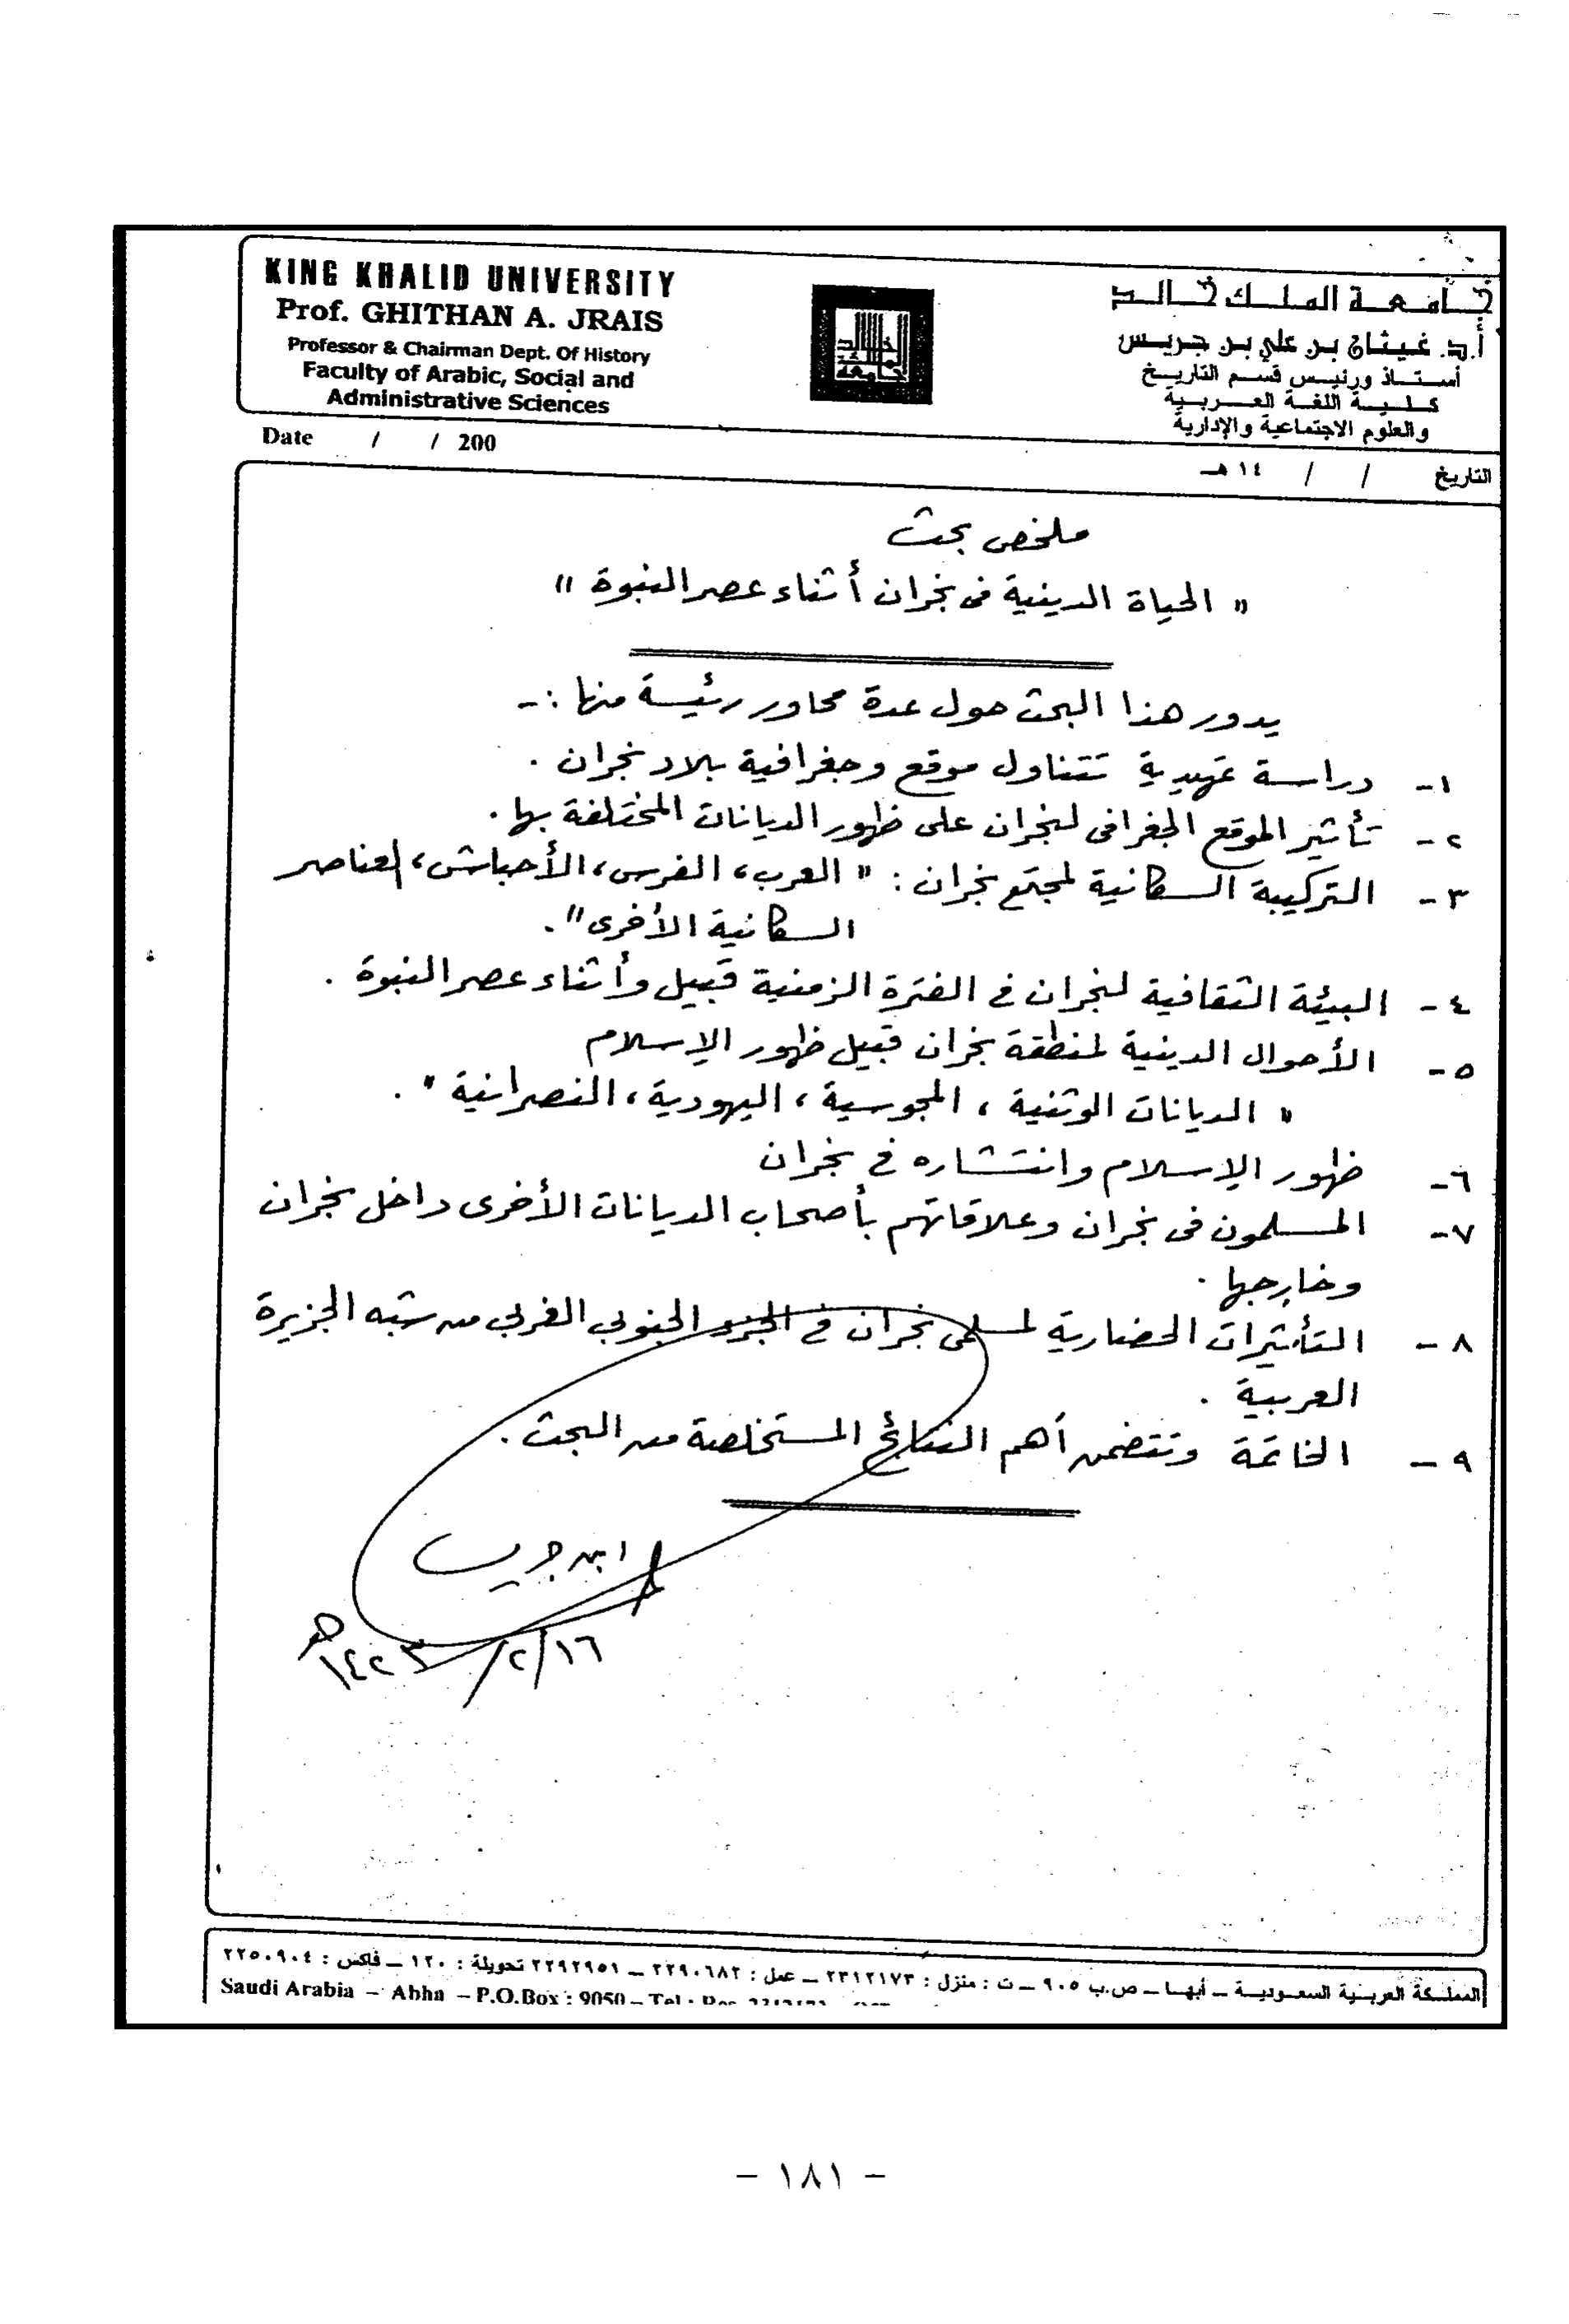 KING KHALID UNIVERSITY
Prof. GHITHAN A. JRAIS
Professor & Chairman Dept. Of History
Faculty of Arabic, Social and
Administrative Sciences
Date / / 200
جامعة الملك خالد
أ.د. غيثان بن علي بن جريس
أستاذ ورئيس قسم التاريخ
كلية اللغة العربية
والعلوم الاجتماعية والإدارية
التاريخ / / ١٤ هـ
ملخص بحث
" الحياة الدينية في نجران أثناء عصر النبوة "
يدور هذا البحث حول عدة محاور رئيسة منها :-
١- دراسة تمهيدية تتناول موقع وجغرافية بلاد نجران .
٢- تأثير الموقع الجغرافي لنجران على ظهور الديانات المختلفة بها .
٣- التركيبة السكانية لمجتمع نجران : " العرب ، الفرس ، الأحباش ، العناصر
السكانية الأخرى " .
٤- البيئة الثقافية لنجران في الفترة الزمنية قبيل وأثناء عصر النبوة .
٥- الأحوال الدينية لمنطقة نجران قبيل ظهور الإسلام
" الديانات الوثنية ، المجوسية ، اليهودية ، النصرانية " .
٦- ظهور الإسلام وانتشاره في نجران
٧- المسلمون في نجران وعلاقاتهم بأصحاب الديانات الأخرى داخل نجران
وخارجها .
٨- التأثيرات الحضارية لمسلمي نجران في الجزء الجنوبي الغربي من شبه الجزيرة
العربية .
٩- الخاتمة وتتضمن أهم النتائج المستخلصة من البحث .
ابن جريس
١٦/٢/١٤٢٣هـ
المملكة العربية السعودية – أبها – ص.ب ٩٠٥ – ت : منزل : ٢٣١٢١٧٣ – عمل : ٢٢٩٠٦٨٢ – ٢٢٩٢٩٥١ تحويلة : ١٢٠ – فاكس : ٢٢٥٠٩٠٤
Saudi Arabia – Abha – P.O.Box : 9050 – Tel :
- ١٨١ -